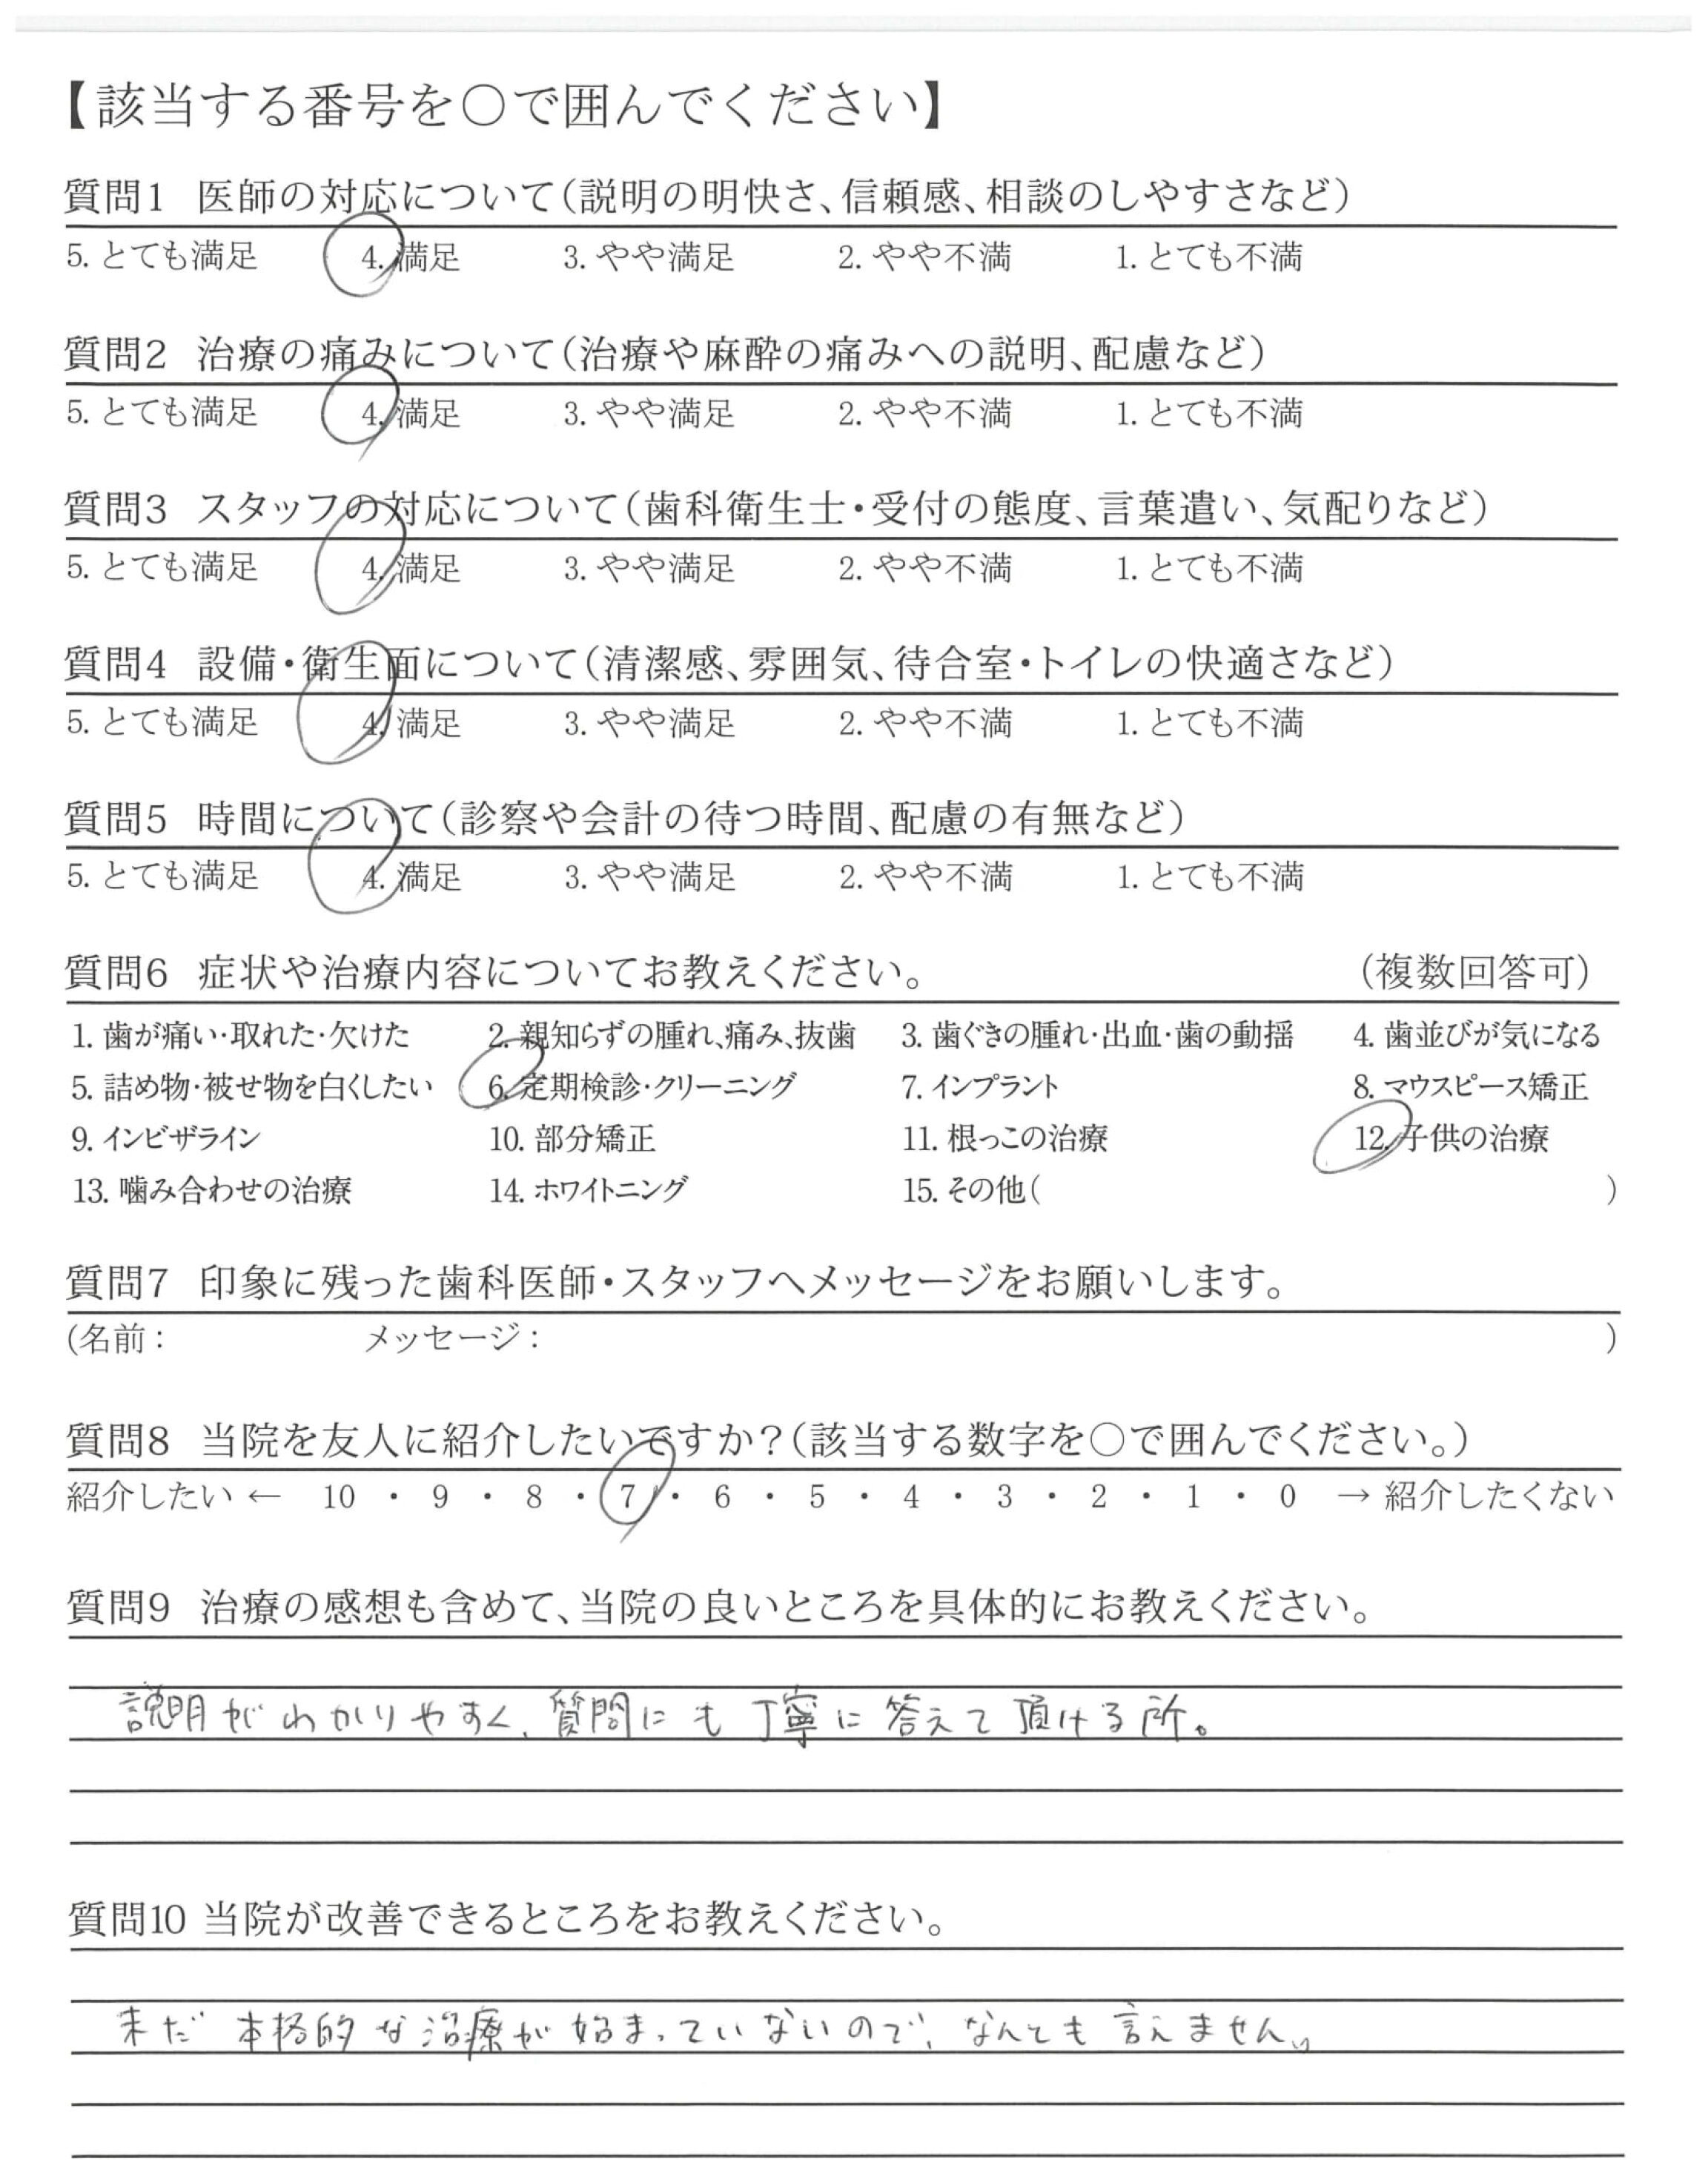 【該当する番号を○で囲んでください】
質問1 医師の対応について(説明の明快さ、信頼感、相談のしやすさなど)
5. とても満足 4. 満足 3. やや満足 2. やや不満 1. とても不満
質問2 治療の痛みについて(治療や麻酔の痛みへの説明、配慮など)
5. とても満足 4. 満足 3. やや満足 2. やや不満 1. とても不満
質問3 スタッフの対応について(歯科衛生士・受付の態度、言葉遣い、気配りなど)
5. とても満足 4. 満足 3. やや満足 2. やや不満 1. とても不満
質問4 設備・衛生面について(清潔感、雰囲気、待合室・トイレの快適さなど)
5. とても満足 4. 満足 3. やや満足 2. やや不満 1. とても不満
質問5 時間について(診察や会計の待つ時間、配慮の有無など)
5. とても満足 4. 満足 3. やや満足 2. やや不満 1. とても不満
質問6 症状や治療内容についてお教えください。 (複数回答可)
1. 歯が痛い・取れた・欠けた 2. 親知らずの腫れ、痛み、抜歯 3. 歯ぐきの腫れ・出血・歯の動揺 4. 歯並びが気になる
5. 詰め物・被せ物を白くしたい 6. 定期検診・クリーニング 7. インプラント 8. マウスピース矯正
9. インビザライン 10. 部分矯正 11. 根っこの治療 12. 子供の治療
13. 噛み合わせの治療 14. ホワイトニング 15. その他( )
質問7 印象に残った歯科医師・スタッフへメッセージをお願いします。
(名前: メッセージ: )
質問8 当院を友人に紹介したいですか?(該当する数字を○で囲んでください。)
紹介したい ← 10 ・ 9 ・ 8 ・ 7 ・ 6 ・ 5 ・ 4 ・ 3 ・ 2 ・ 1 ・ 0 → 紹介したくない
質問9 治療の感想も含めて、当院の良いところを具体的にお教えください。
説明がわかりやすく、質問にも丁寧に答えて頂ける所。
質問10 当院が改善できるところをお教えください。
未だ本格的な治療が始まっていないので、なんとも言えません。